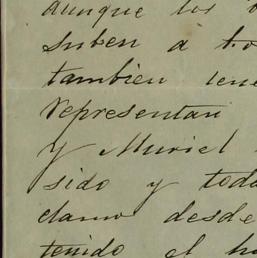 aunque los
suben a
también
representan
y Muriel
sido y toda
clamo desde
tenido el